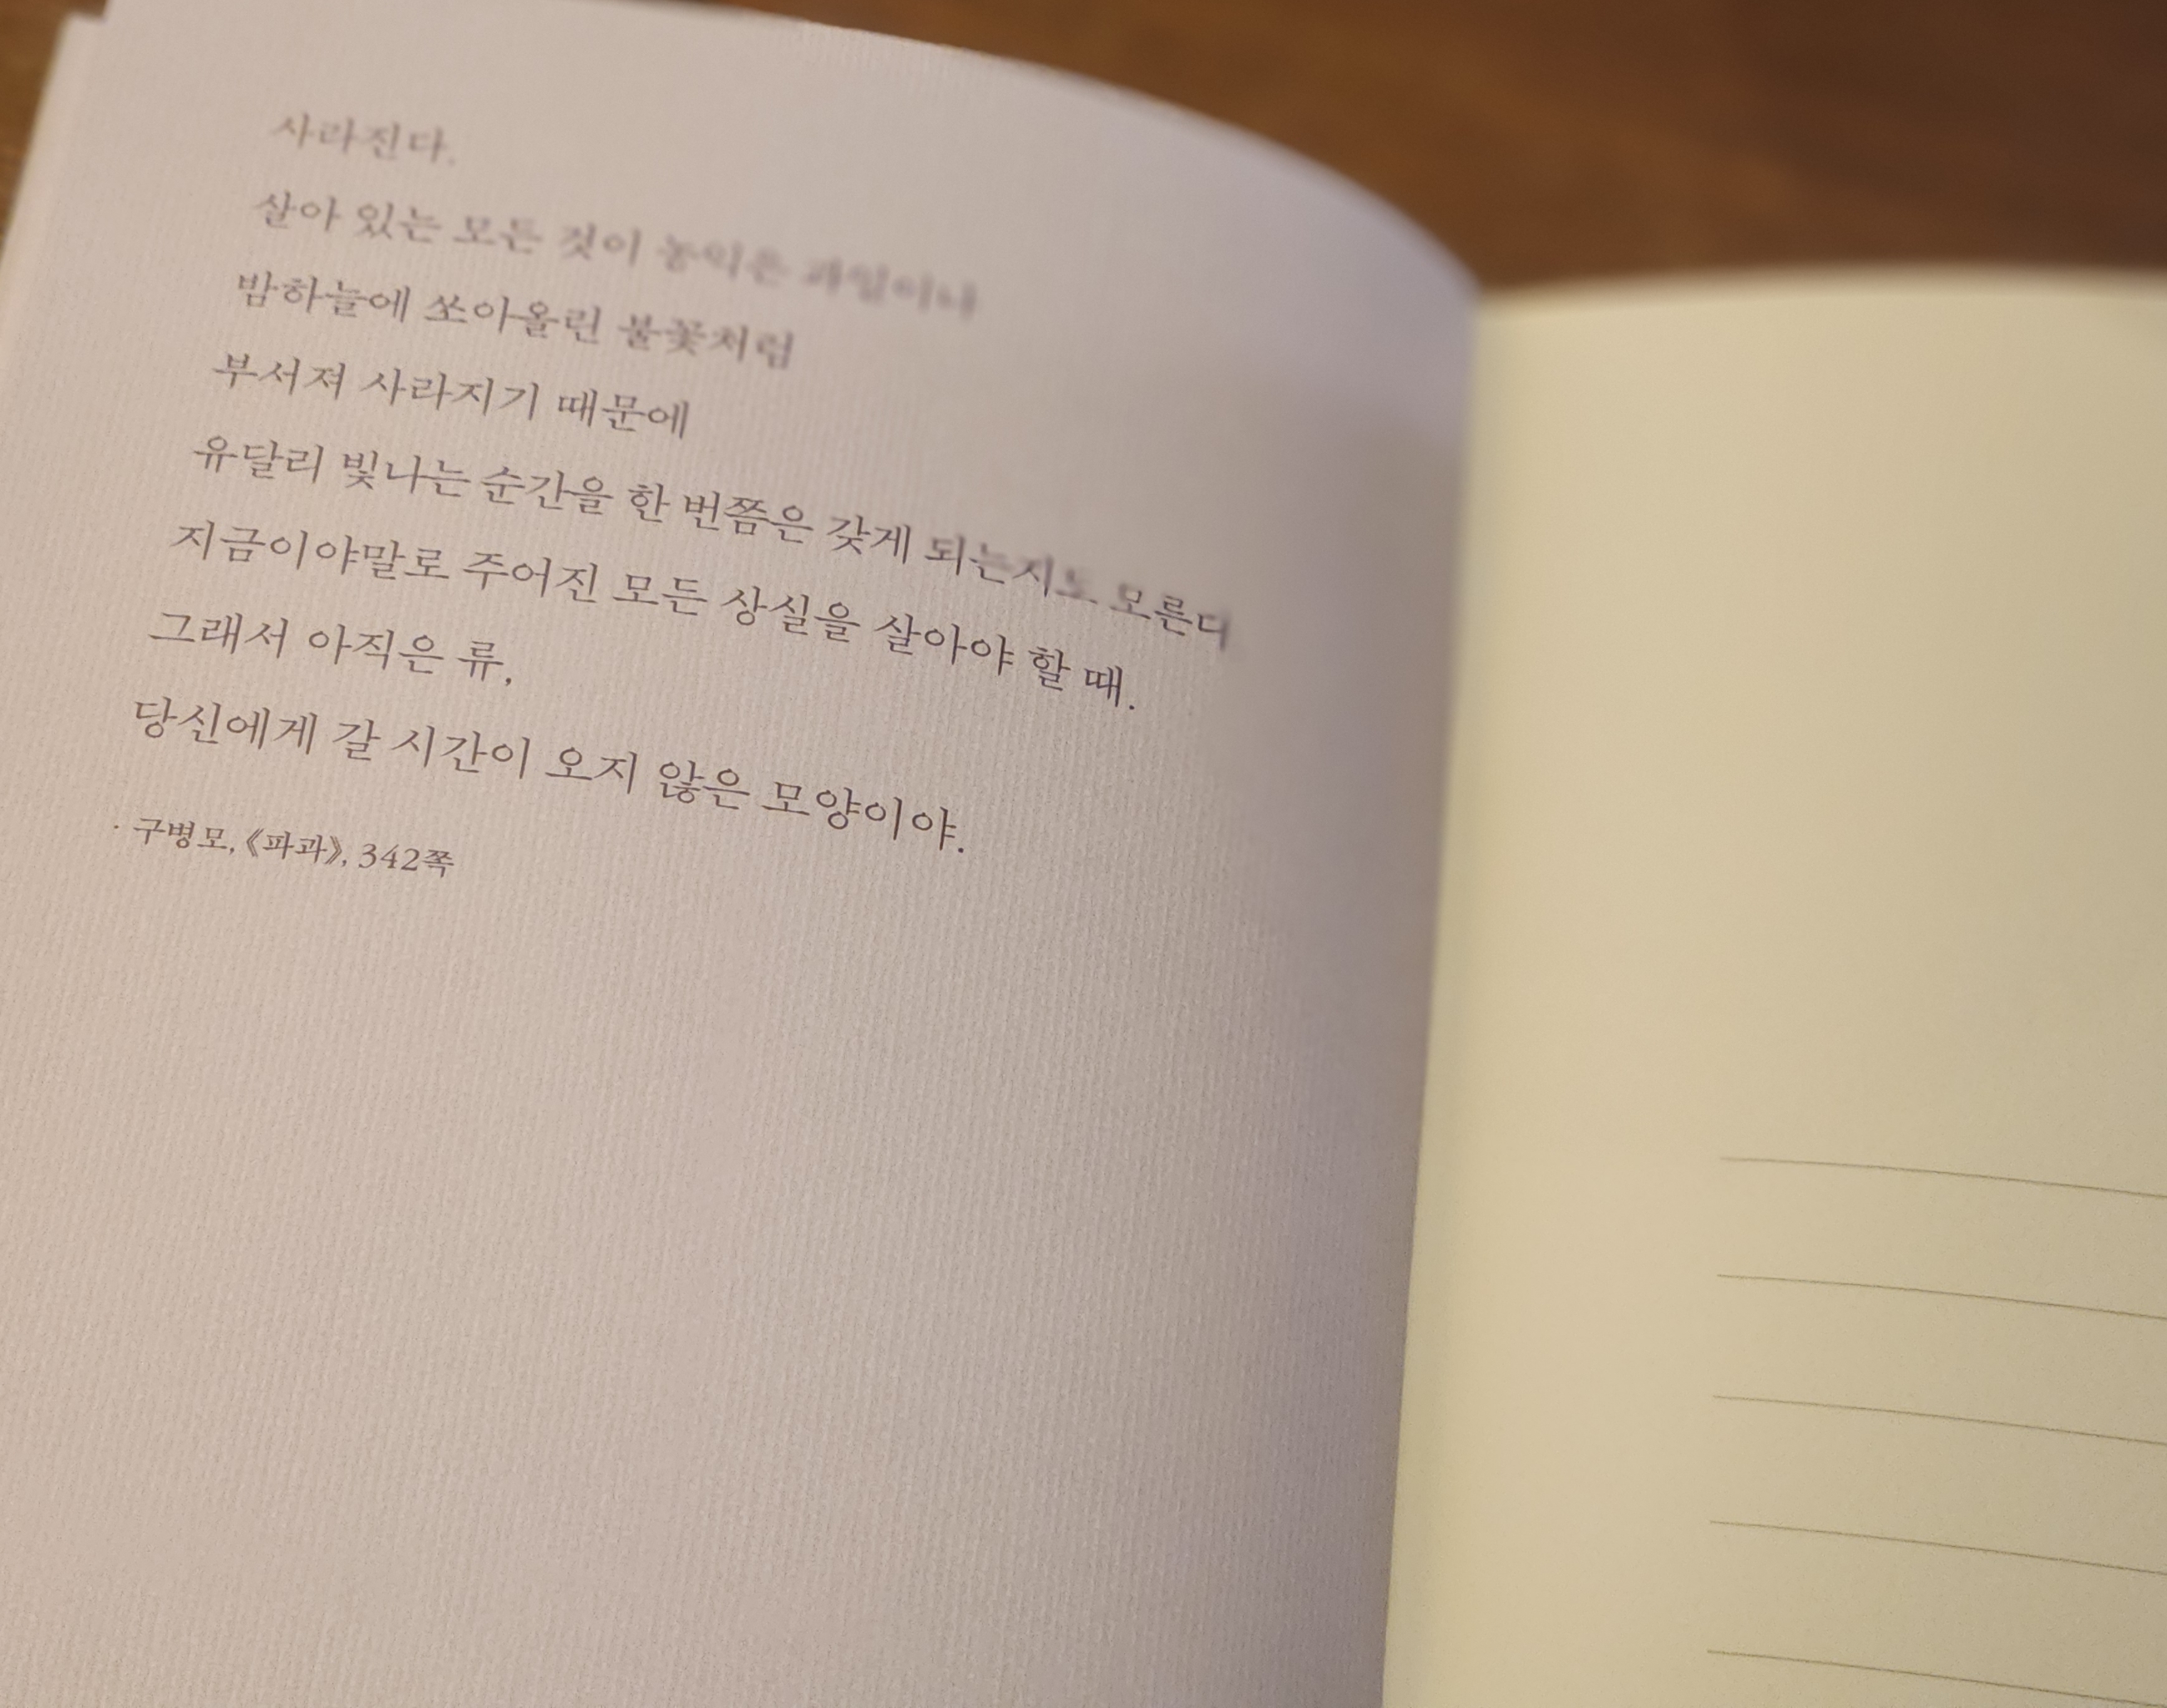 사라진다.
살아 있는 모든 것이 농익은 과일이나
밤하늘에 쏘아올린 불꽃처럼
부서져 사라지기 때문에
유달리 빛나는 순간을 한 번쯤은 갖게 되는지도 모른다
지금이야말로 주어진 모든 상실을 살아야 할 때.
그래서 아직은 류,
당신에게 갈 시간이 오지 않은 모양이야.
· 구병모, 《파과》, 342쪽